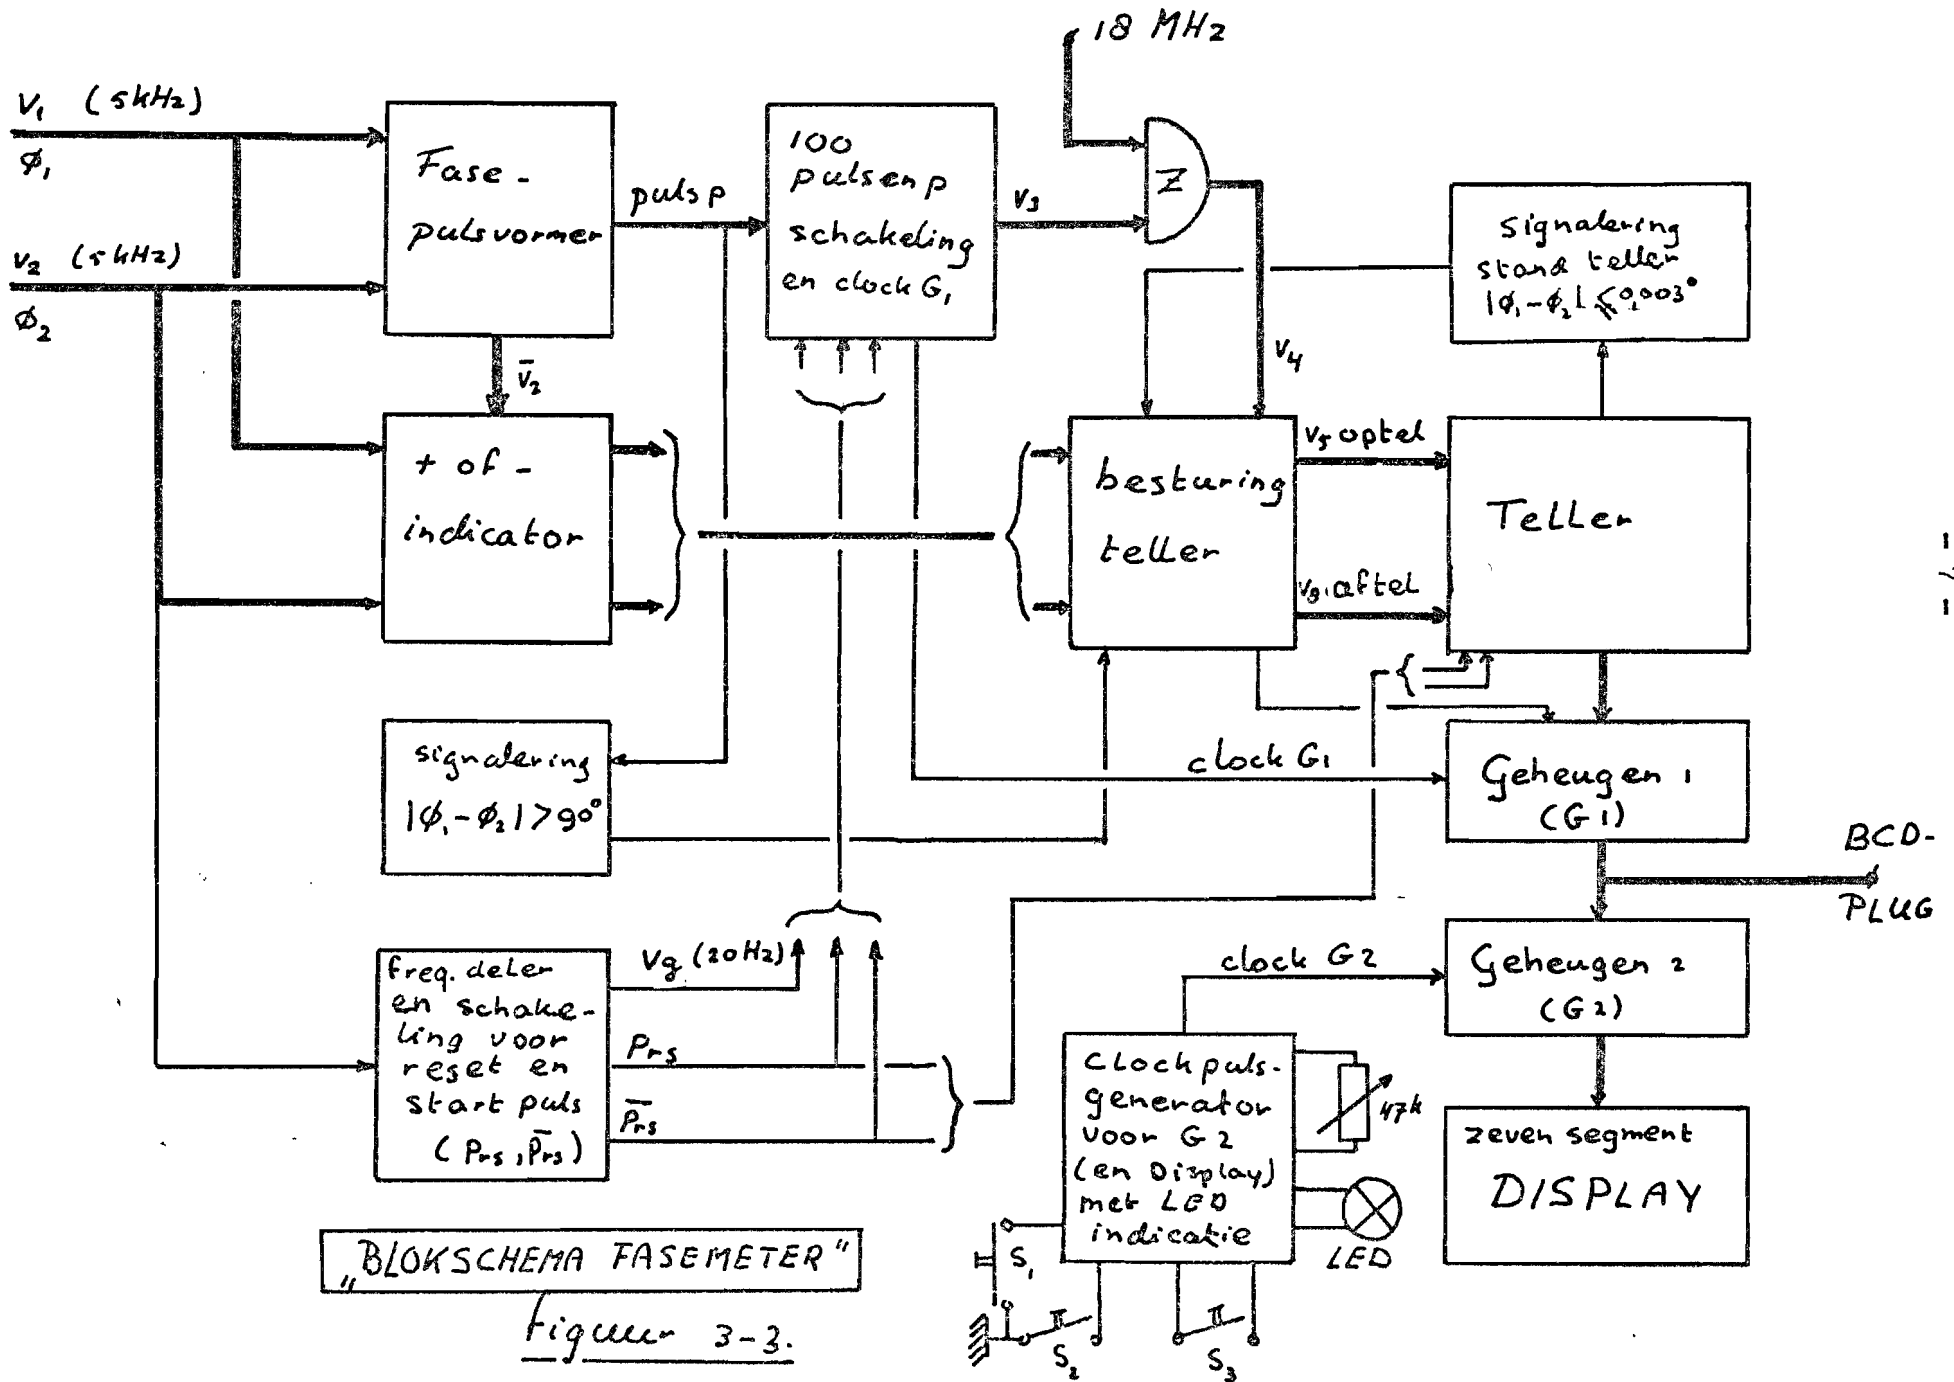 18 MHz
V₁ (5kHz)
φ₁
V₂ (5kHz)
φ₂
Fase-
pulsvormer
puls p
100
pulsen p
schakeling
en clock G₁
V₃
Z
V₄
signalering
stand teller
|φ₁-φ₂| ≤ 0,003°
V̅₂
+ of -
indicator
besturing
teller
V₅ optel
aftel
Teller
- 7 -
signalering
|φ₁-φ₂| > 90°
clock G1
Geheugen 1
(G1)
BCD-
PLUG
freq. deler
en schake-
ling voor
reset en
start puls
(Prs, P̅rs)
Vg (20Hz)
Prs
P̅rs
clock G2
Geheugen 2
(G2)
clockpuls-
generator
voor G2
(en Display)
met LED
indicatie
47k
LED
S₁
S₂
S₃
zeven segment
DISPLAY
„BLOKSCHEMA FASEMETER"
Figuur 3-3.